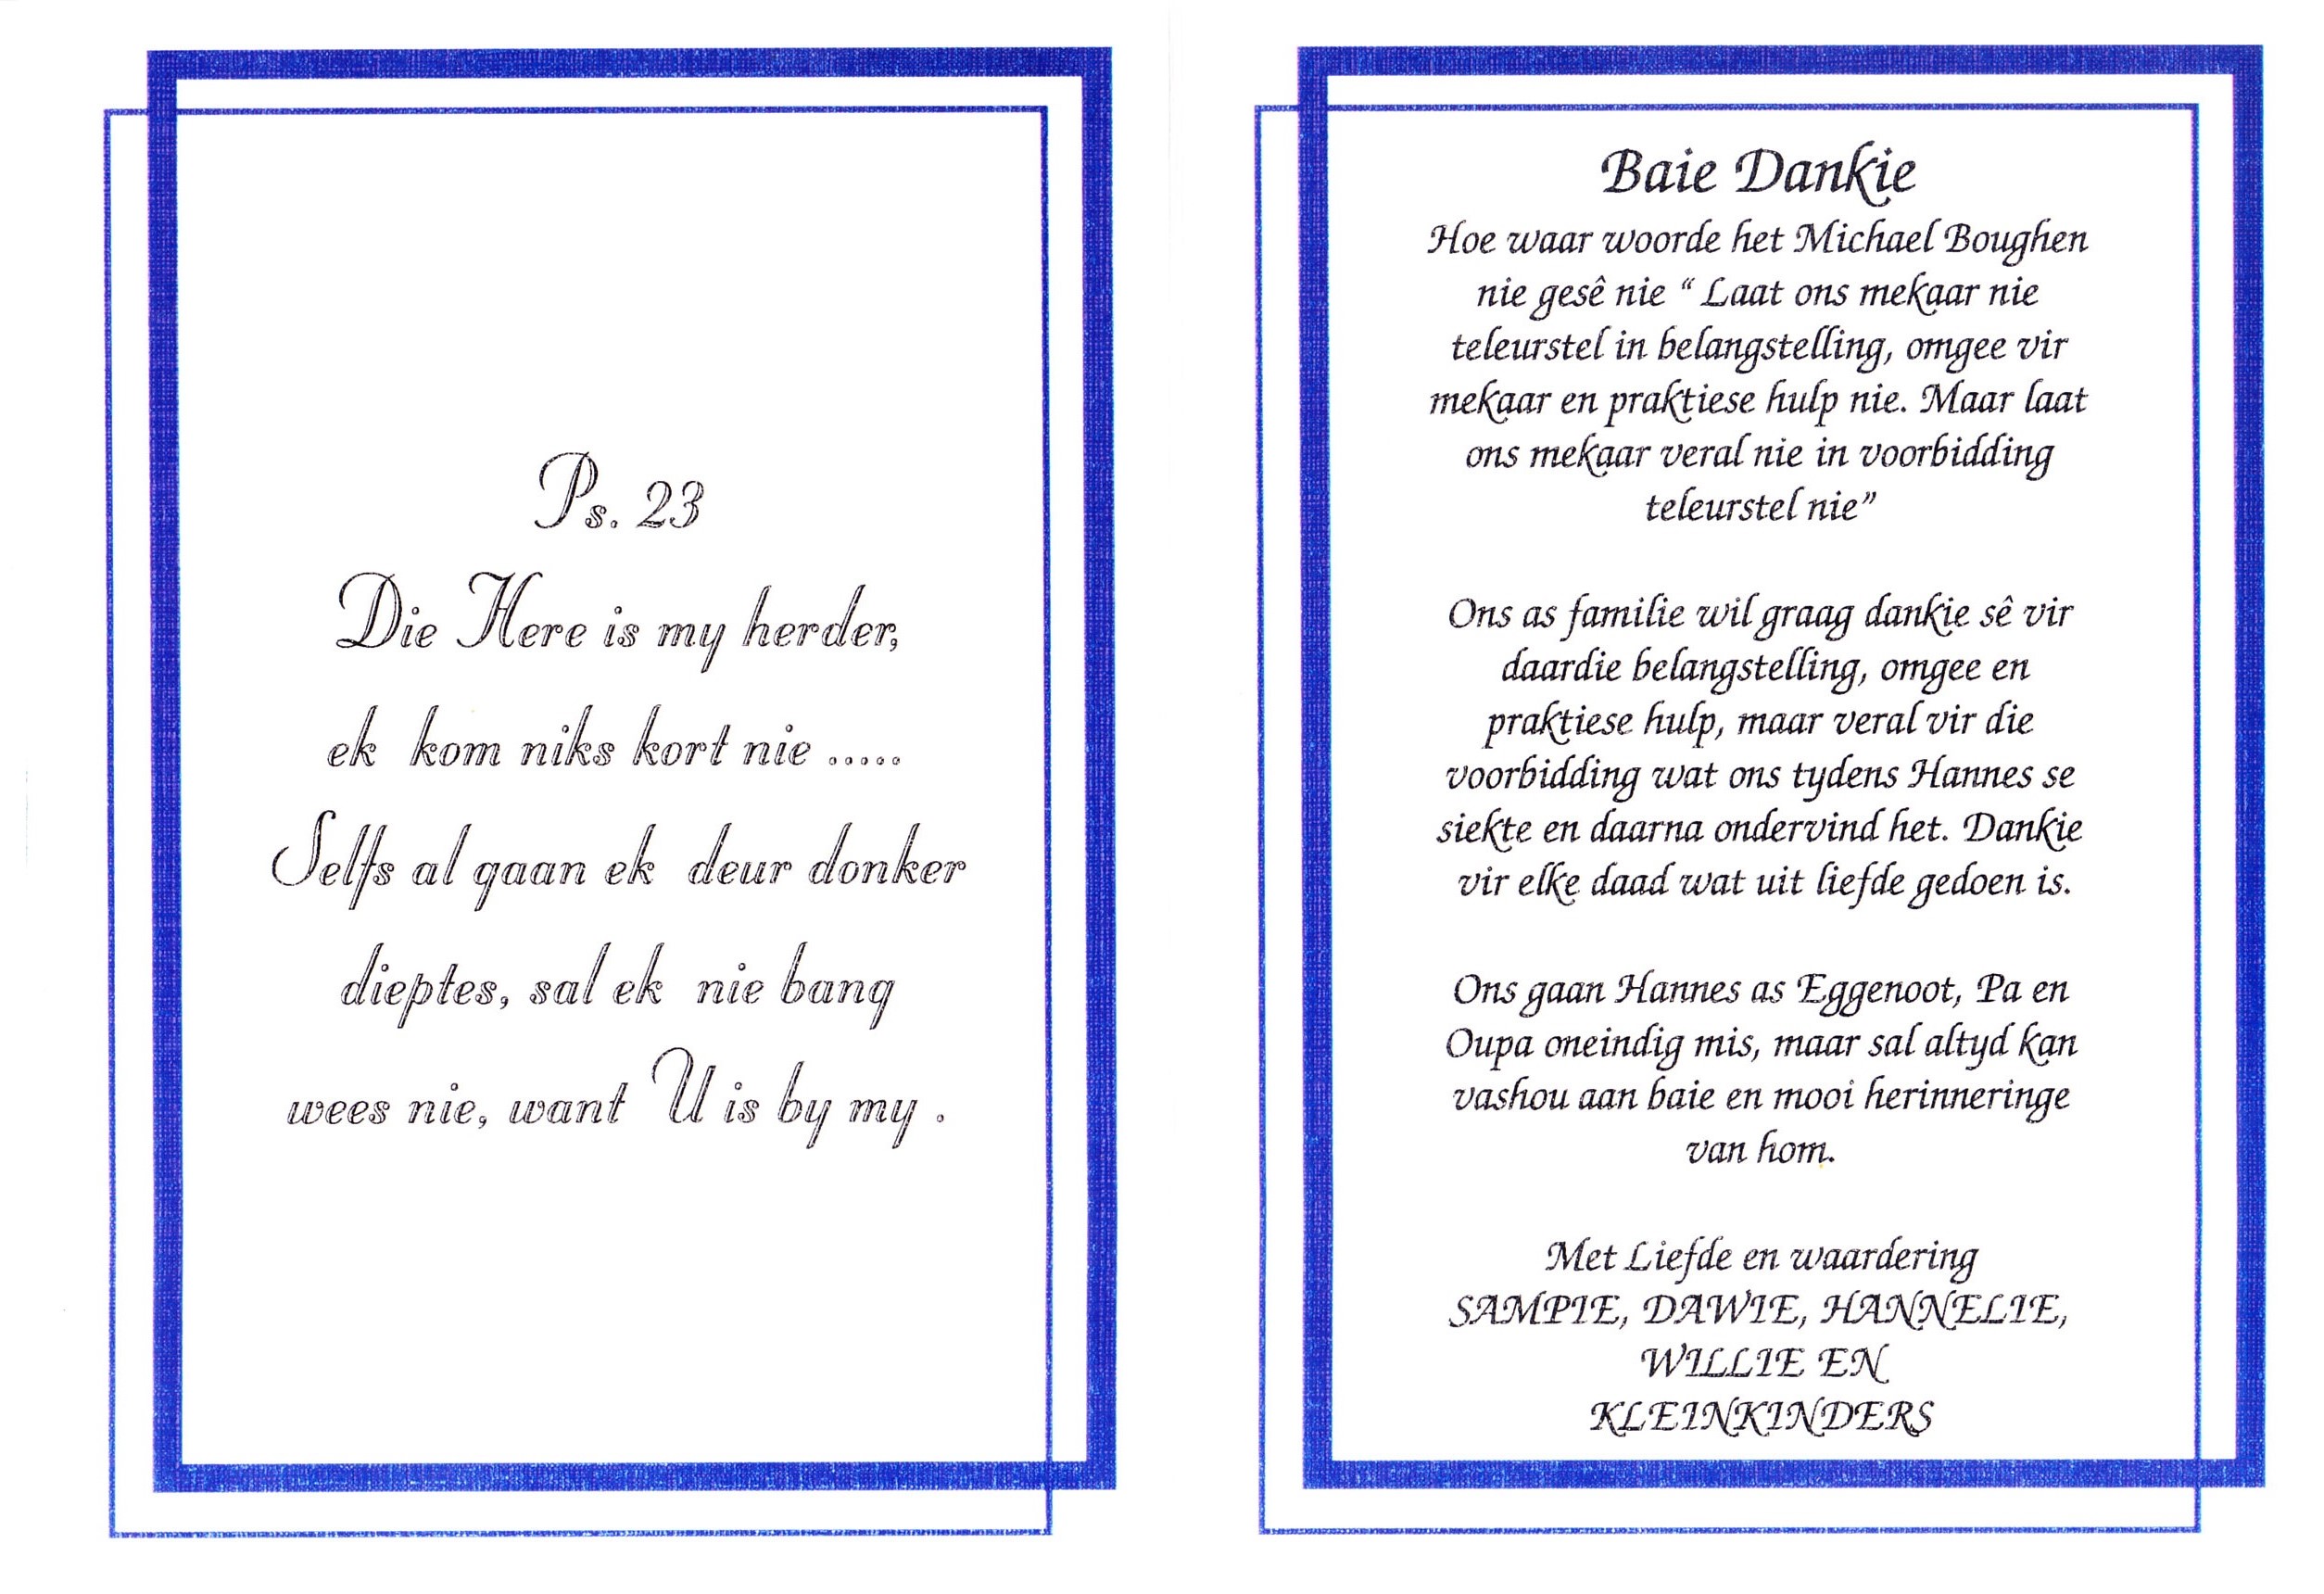 Ps. 23
Die Here is my herder,
ek kom niks kort nie .....
Selfs al gaan ek deur donker
dieptes, sal ek nie bang
wees nie, want U is by my .
Baie Dankie
Hoe waar woorde het Michael Boughen
nie gesê nie “ Laat ons mekaar nie
teleurstel in belangstelling, omgee vir
mekaar en praktiese hulp nie. Maar laat
ons mekaar veral nie in voorbidding
teleurstel nie”
Ons as familie wil graag dankie sê vir
daardie belangstelling, omgee en
praktiese hulp, maar veral vir die
voorbidding wat ons tydens Hannes se
siekte en daarna ondervind het. Dankie
vir elke daad wat uit liefde gedoen is.
Ons gaan Hannes as Eggenoot, Pa en
Oupa oneindig mis, maar sal altyd kan
vashou aan baie en mooi herinneringe
van hom.
Met Liefde en waardering
SAMPIE, DAWIE, HANNELIE,
WILLIE EN
KLEINKINDERS